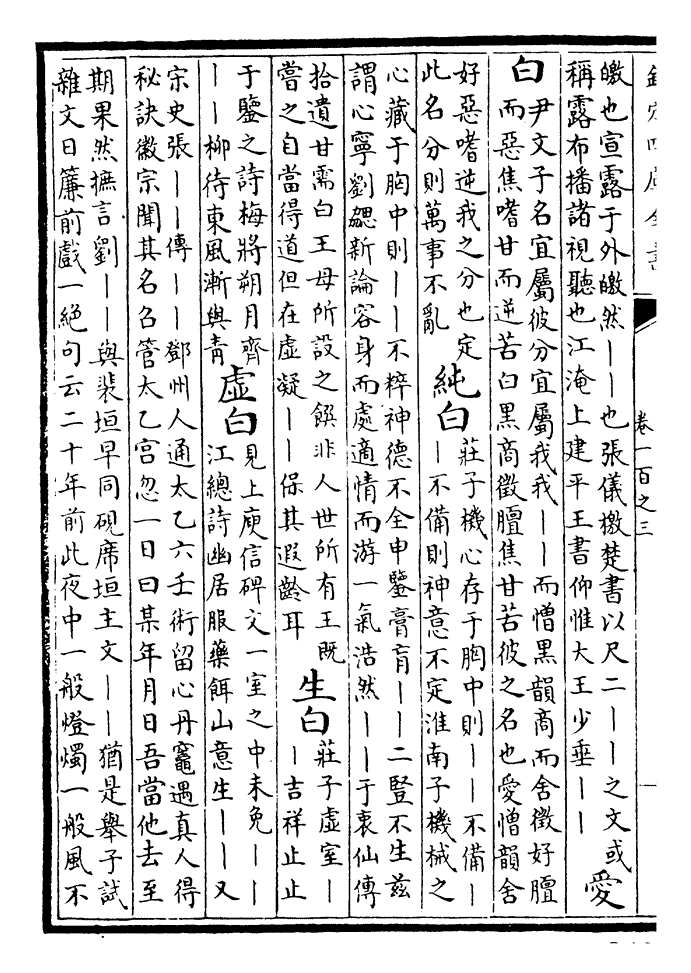 欽定四庫全書
卷一百之三
皦也宣露于外皦然丨丨也張儀檄楚書以尺二丨丨之文或
稱露布播諸視聽也江淹上建平王書仰惟大王少垂丨丨
愛
白
尹文子名宜屬彼分宜屬我我丨丨而憎黑韻商而舍徵好膻
而惡焦嗜甘而逆苦白黑商徵膻焦甘苦彼之名也愛憎韻舍
好惡嗜逆我之分也定
此名分則萬事不亂
純白
莊子機心存于胸中則丨丨不備丨
丨不備則神意不定淮南子機械之
心藏于胸中則丨丨不粹神德不全申鑒膏肓丨丨二豎不生茲
謂心寧劉勰新論容身而處適情而游一氣浩然丨丨于衷仙傳
拾遺甘需白王母所設之饌非人世所有王既
嘗之自當得道但在虛凝丨丨保其遐齡耳
生白
莊子虛室丨
丨吉祥止止
于鑒之詩梅將朔月齊
丨丨柳待東風漸與青
虛白
見上庾信碑文一室之中未免丨丨
江總詩幽居服藥餌山意生丨丨又
宋史張丨丨傳丨丨鄧州人通太乙六壬術留心丹竈遇真人得
秘訣徽宗聞其名召管太乙宮忽一日曰某年月日吾當他去至
期果然摭言劉丨丨與裴垣早同硯席垣主文丨丨猶是舉子試
雜文日簾前戲一絕句云二十年前此夜中一般燈燭一般風不